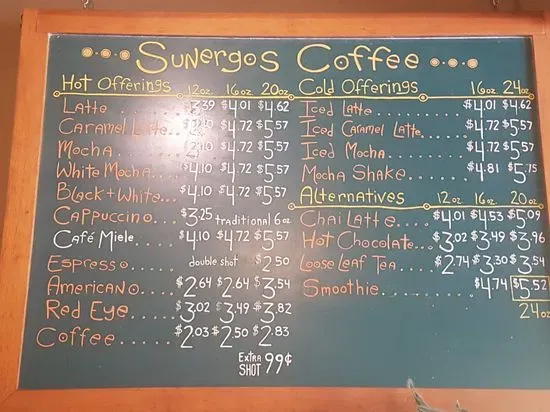 Sunergos Coffee
Hot Offerings 12oz 16oz 20oz
Latte $3.39 $4.01 $4.62
Caramel Latte $4.72 $5.57
Mocha $4.72 $5.57
White Mocha $4.10 $4.72 $5.57
Black + White $4.10 $4.72 $5.57
Cappuccino $3.25 traditional 6oz
Café Miele $4.10 $4.72 $5.57
Espresso double shot $2.50
Americano $2.64 $2.64 $3.54
Red Eye $3.02 $3.49 $3.82
Coffee $2.03 $2.50 $2.83
Extra Shot 99¢
Cold Offerings 16oz 24oz
Iced Latte $4.01 $4.62
Iced Caramel Latte $4.72 $5.57
Iced Mocha $4.72 $5.57
Mocha Shake $4.81 $5.75
Alternatives 12oz 16oz 20oz
Chai Latte $4.01 $4.53 $5.09
Hot Chocolate $3.02 $3.49 $3.96
Loose Leaf Tea $2.74 $3.30 $3.54
Smoothie $4.74 $5.52
24oz